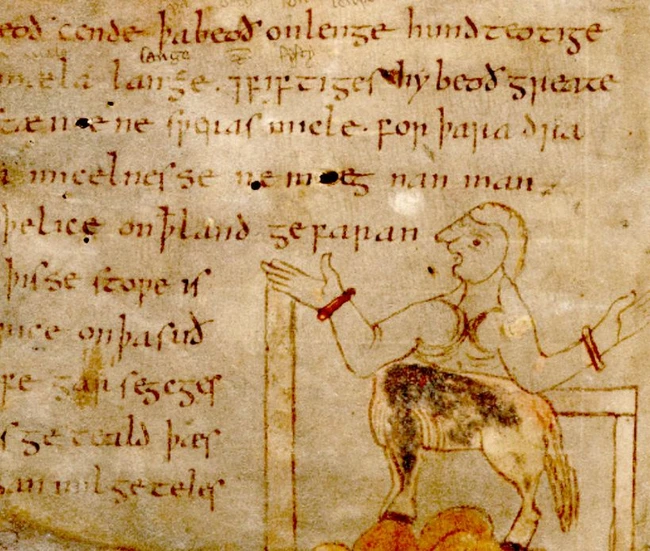 eoð cende þa beoð on lenge hundteotige
mela lange · ⁊ fiftiges hy beoð greate
stænene sweras micle · for þara dra
micelnesse ne mæg nan man
þelice on ꝥ land gefaran
þisse stowe is
rice on þa suð
fe garsecges
ge teald þæs
an mil geteles